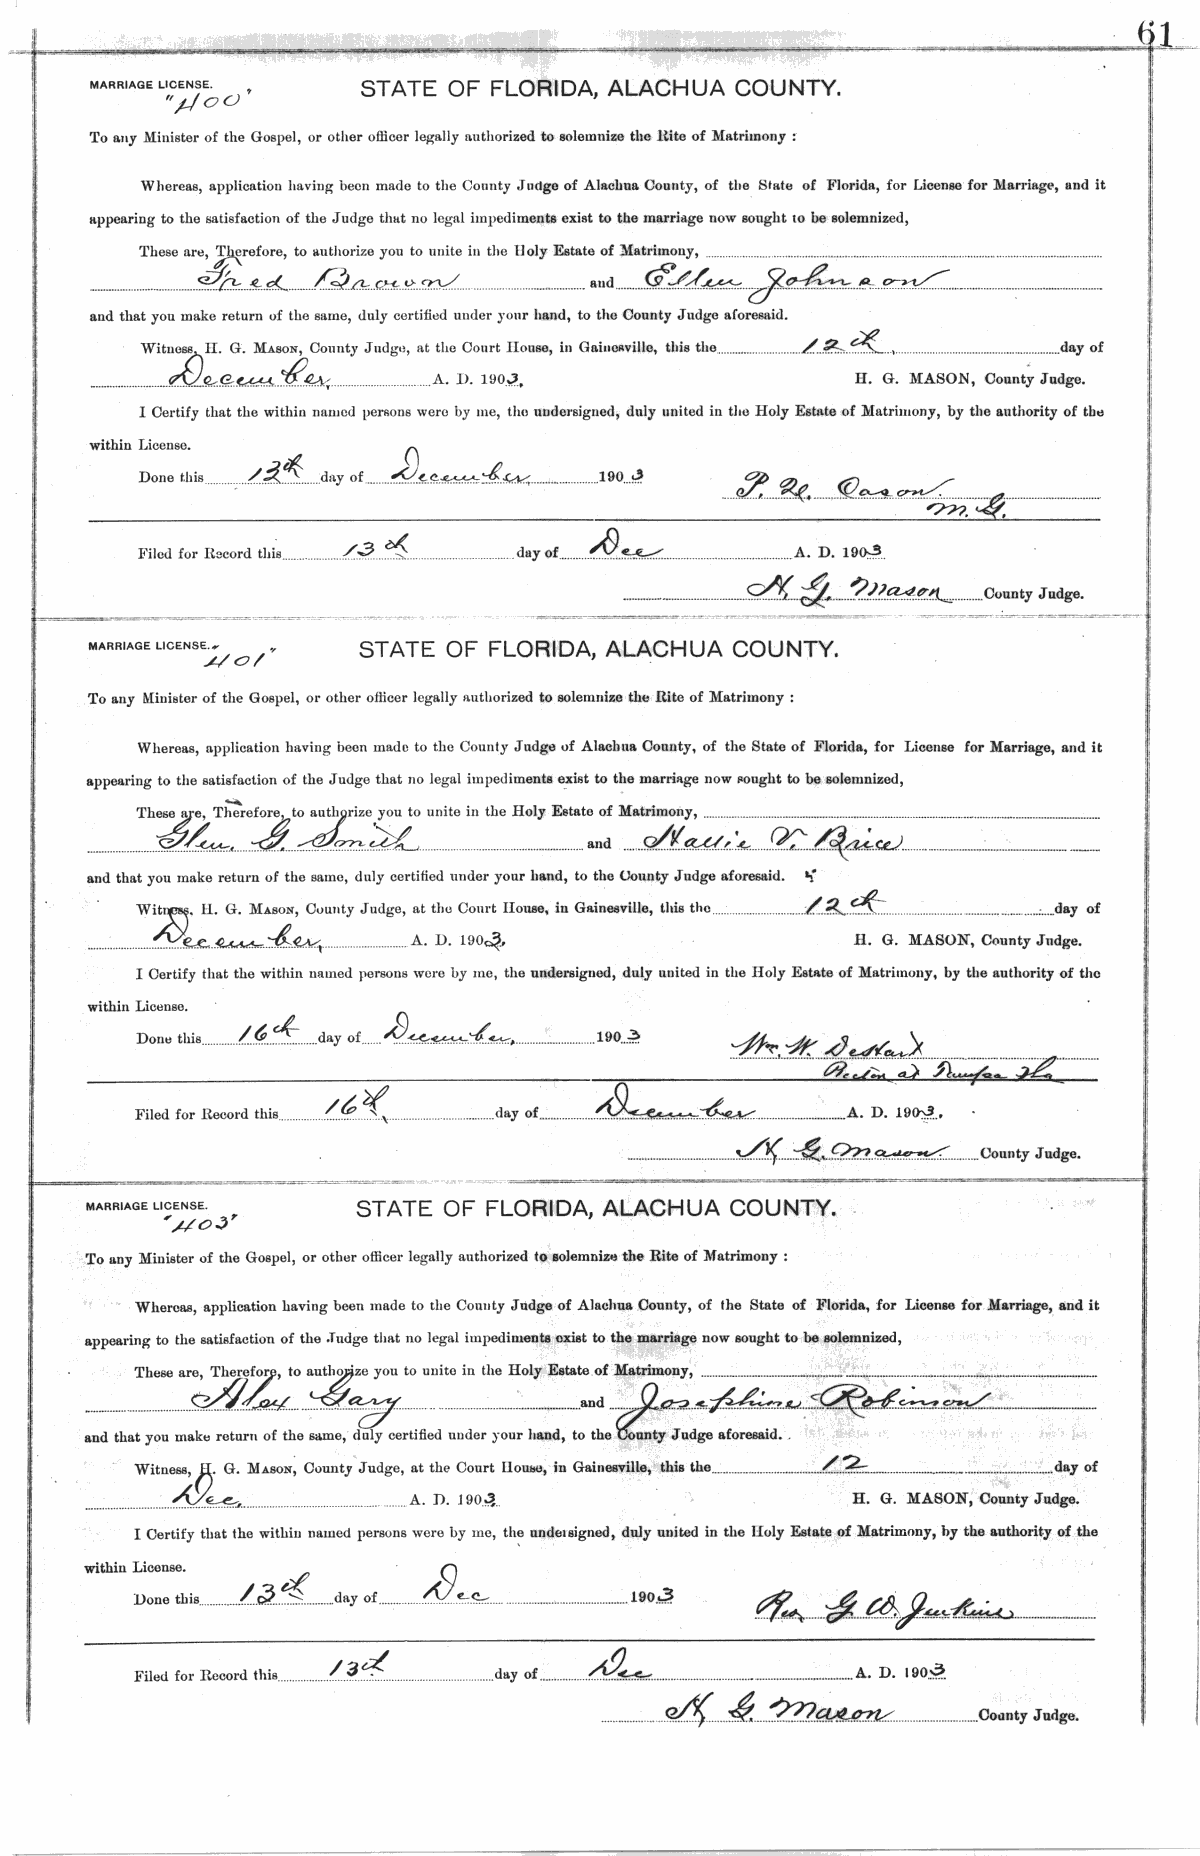 61
MARRIAGE LICENSE. STATE OF FLORIDA, ALACHUA COUNTY.
"400"
To any Minister of the Gospel, or other officer legally authorized to solemnize the Rite of Matrimony :
Whereas, application having been made to the County Judge of Alachua County, of the State of Florida, for License for Marriage, and it
appearing to the satisfaction of the Judge that no legal impediments exist to the marriage now sought to be solemnized,
These are, Therefore, to authorize you to unite in the Holy Estate of Matrimony,
Fred Brown and Ellen Johnson
and that you make return of the same, duly certified under your hand, to the County Judge aforesaid.
Witness, H. G. MASON, County Judge, at the Court House, in Gainesville, this the 12th, day of
December, A. D. 1903. H. G. MASON, County Judge.
I Certify that the within named persons were by me, the undersigned, duly united in the Holy Estate of Matrimony, by the authority of the
within License.
Done this 13th day of December, 1903
P. Cason.
M. G.
Filed for Record this 13th day of Dec A. D. 1903
H. G. Mason County Judge.
MARRIAGE LICENSE. STATE OF FLORIDA, ALACHUA COUNTY.
"401"
To any Minister of the Gospel, or other officer legally authorized to solemnize the Rite of Matrimony :
Whereas, application having been made to the County Judge of Alachua County, of the State of Florida, for License for Marriage, and it
appearing to the satisfaction of the Judge that no legal impediments exist to the marriage now sought to be solemnized,
These are, Therefore, to authorize you to unite in the Holy Estate of Matrimony,
Glen. G. Smith and Hallie V. Brice
and that you make return of the same, duly certified under your hand, to the County Judge aforesaid.
Witness, H. G. MASON, County Judge, at the Court House, in Gainesville, this the 12th day of
December, A. D. 1903. H. G. MASON, County Judge.
I Certify that the within named persons were by me, the undersigned, duly united in the Holy Estate of Matrimony, by the authority of the
within License.
Done this 16th day of December, 1903
Wm. W. DeHart
Rector at Tampa Fla
Filed for Record this 16th, day of December A. D. 1903.
H. G. Mason. County Judge.
MARRIAGE LICENSE. STATE OF FLORIDA, ALACHUA COUNTY.
"403"
To any Minister of the Gospel, or other officer legally authorized to solemnize the Rite of Matrimony :
Whereas, application having been made to the County Judge of Alachua County, of the State of Florida, for License for Marriage, and it
appearing to the satisfaction of the Judge that no legal impediments exist to the marriage now sought to be solemnized,
These are, Therefore, to authorize you to unite in the Holy Estate of Matrimony,
Alex Gary and Josephine Robinson
and that you make return of the same, duly certified under your hand, to the County Judge aforesaid.
Witness, H. G. MASON, County Judge, at the Court House, in Gainesville, this the 12 day of
Dec, A. D. 1903. H. G. MASON, County Judge.
I Certify that the within named persons were by me, the undersigned, duly united in the Holy Estate of Matrimony, by the authority of the
within License.
Done this 13th day of Dec 1903
Rev. G. W. Jenkins
Filed for Record this 13th day of Dec A. D. 1903
H. G. Mason County Judge.